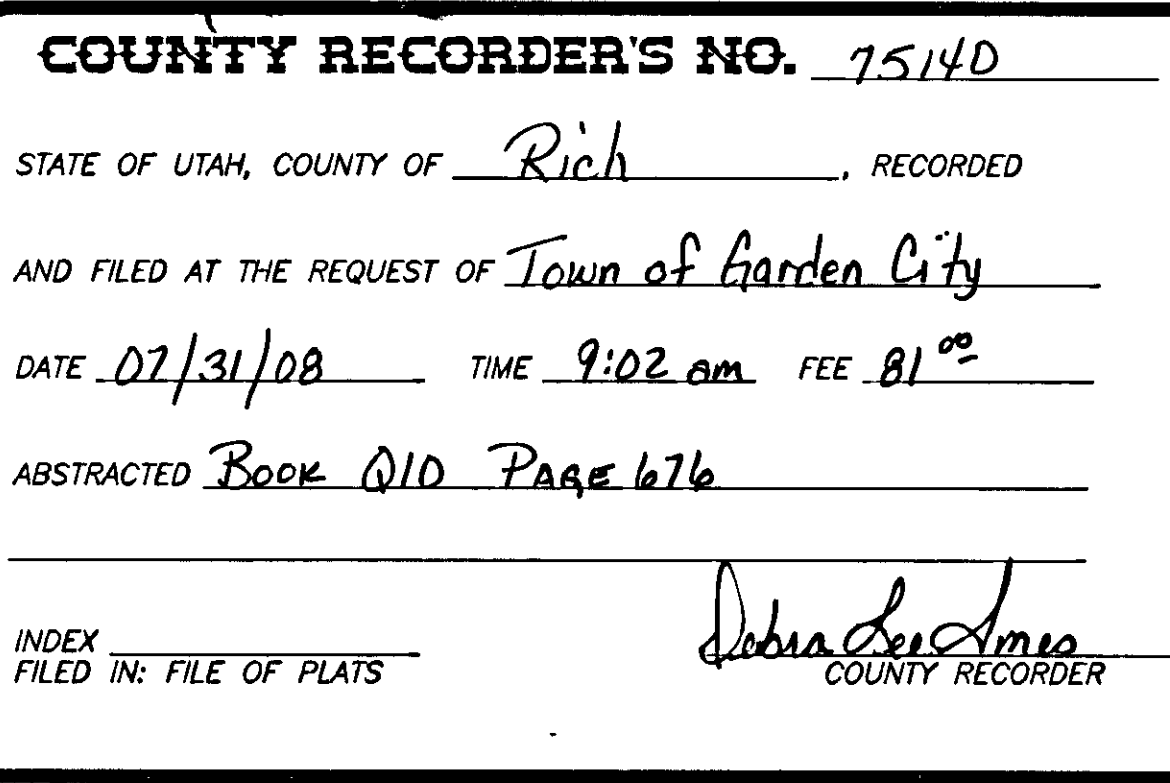 COUNTY RECORDER'S NO. 75140
STATE OF UTAH, COUNTY OF Rich, RECORDED
AND FILED AT THE REQUEST OF Town of Garden City
DATE 07/31/08 TIME 9:02 am FEE 81 00
ABSTRACTED Book Q10 PAGE 676
INDEX
FILED IN: FILE OF PLATS
Debra Lee Ames
COUNTY RECORDER